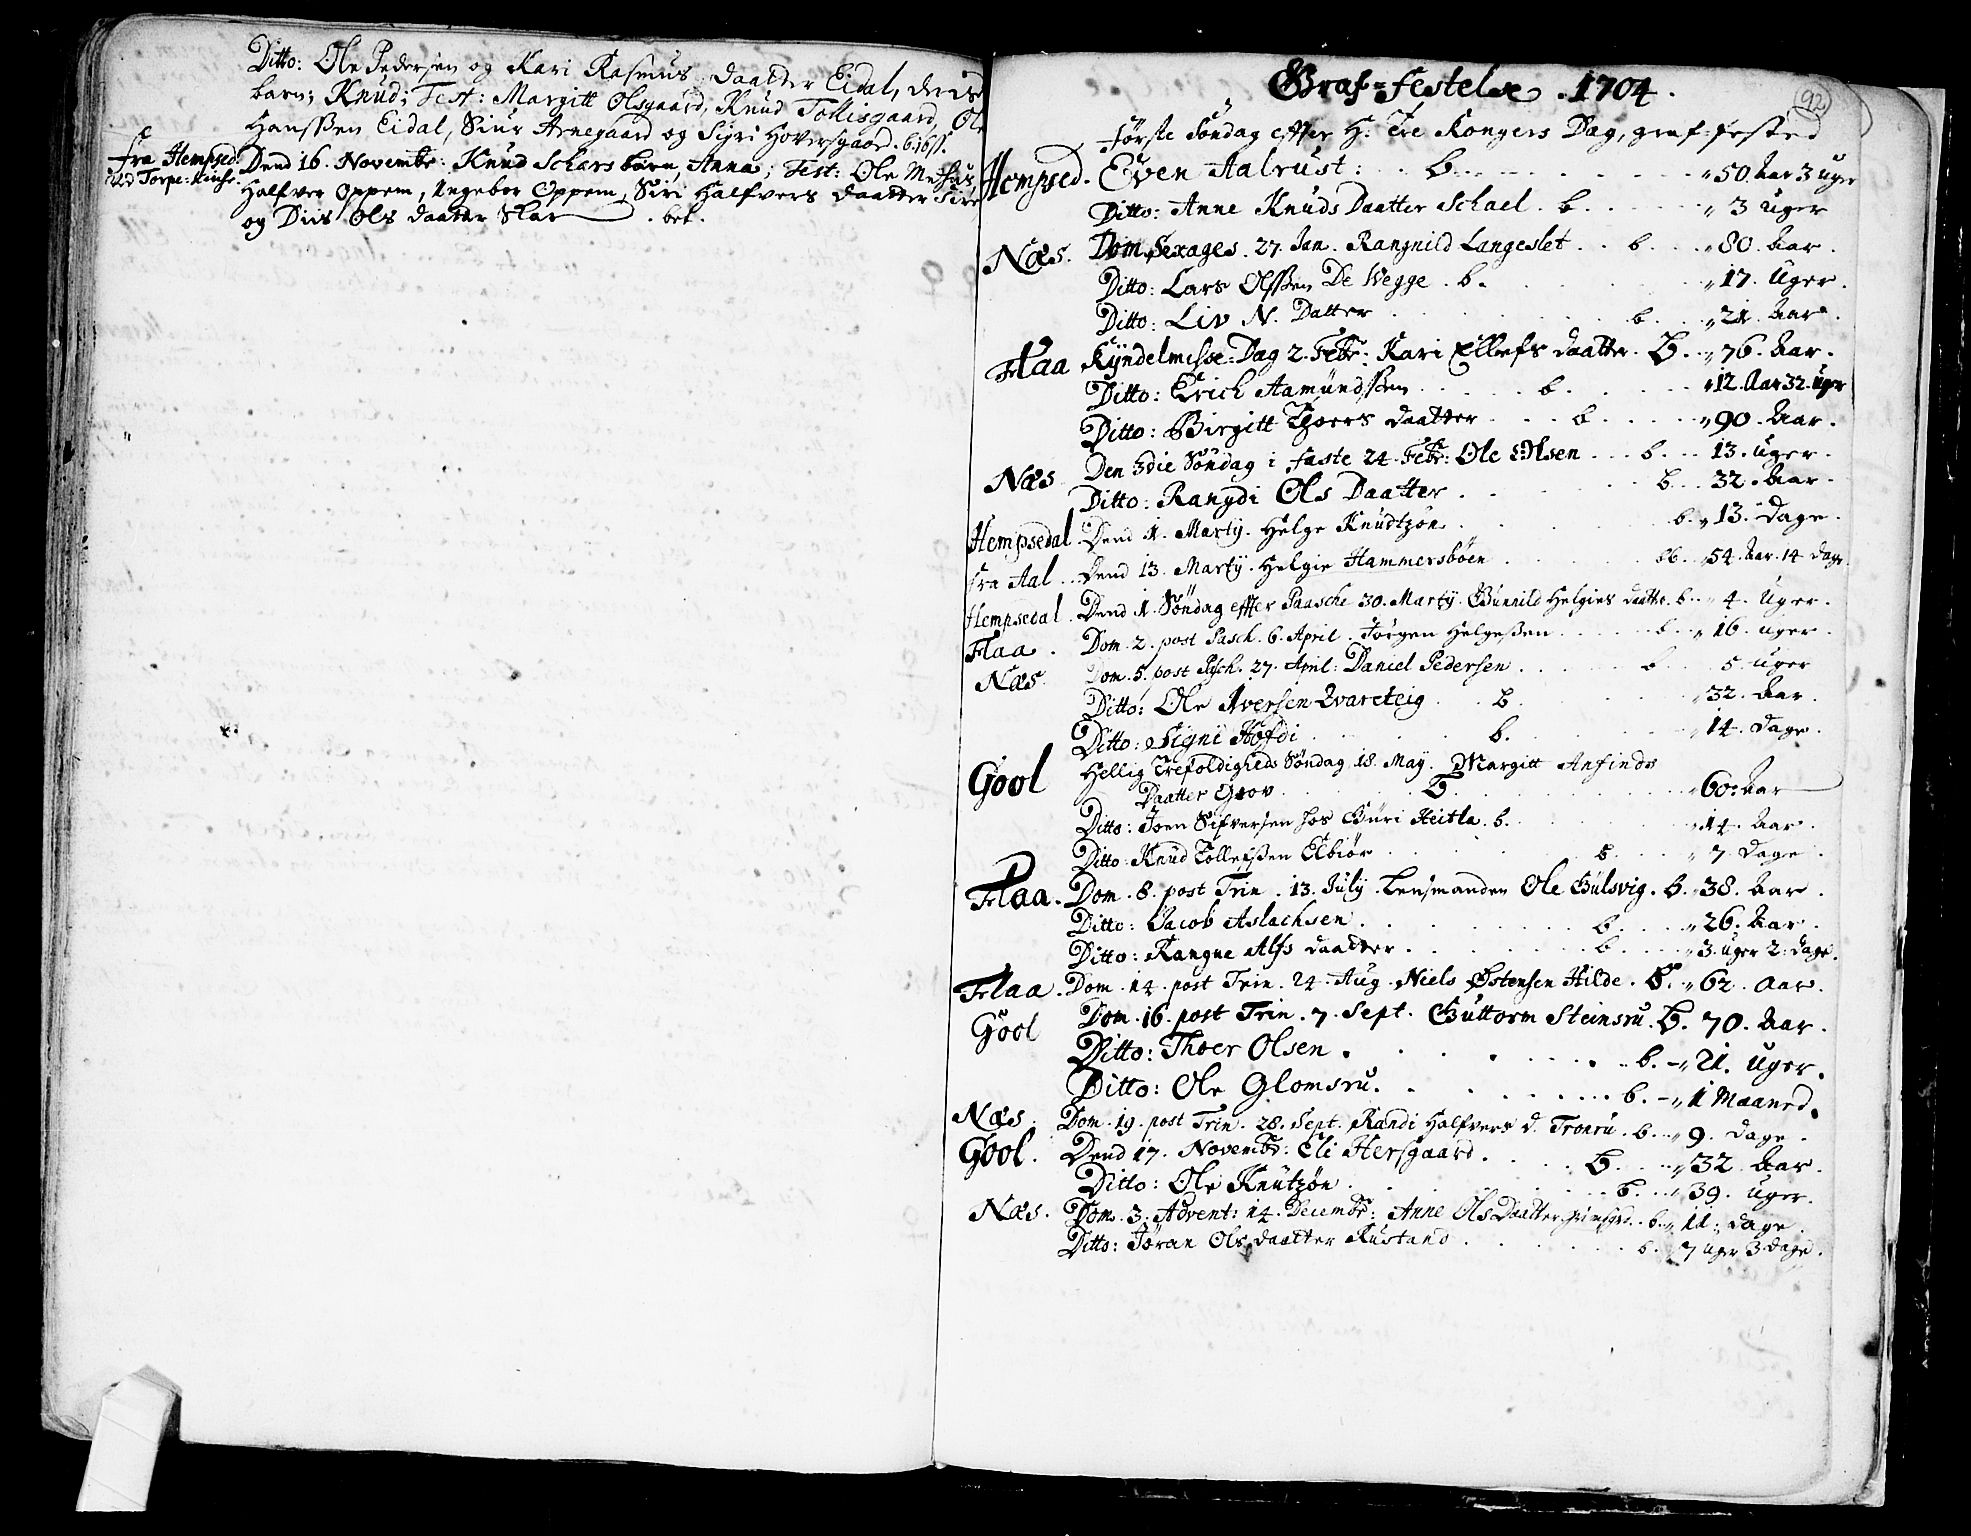 Ditto: Ole Pedersen og Kari Rasmus daatter Eidal, deris
barn; Knud; Test: Margitt Olsgaard, Knud Tollisgaard, Ole
Hansßen Eidal, Siur Arnegaard og Sigri Hoversgaard.
fra Hempsed. Dend 16. Novembr: Knud Schars barn, Anna; Test: Ole
ved Torpe-Kirche. Halfver Oppem, Ingebor Oppem, Siri Halfvers daatter
og Diis Ols daatter Skar . bet.
92
Graf=festelse .1704.
første Søndag effter H: Tre Kongers Dag, graf-fested
Hempsed. Even Aalrust: . . b. . . . „50. Aar 3 uger
Ditto: Anne Knuds Daatter Schael . b. . . . „ 3 uger
Næs. Dom. Sexages. 27. Jan. Rangnild Langeslet . . b. . . „80. Aar .
Ditto: Lars Olsßen De Wegge . b. . . . „17. Uger.
Ditto: Liv N. Datter . . . b. . . „21. Aar.
Flaa Kyndelmisse-Dag 2. Febr: Kari Ellefs daatter. B. . „76. Aar.
Ditto: Erich Aamundsßen . . . b. . . „12. Aar 32. Uger
Ditto: Birgitt Thoers daatter . . . b. . . „90. Aar.
Næs Den 3die Søndag i faste 24. Febr: Ole Olsen . . . b. . . 13. uger.
Ditto: Rangdi Ols Daatter . . . b. . . 32. Aar.
Hempsedal Dend 1. Martij. Helge Knudtzøn . . . b. . „13. Dage.
fra Aal . . Dend 13. Martij. Helgie Hammersbøen . . . bb. . . „54. Aar. 14 dage.
Hempsedal. Dend 1. Søndag effter Paasche 30. Martij. Gunnild Helgies daatter. b. . „4. Uger.
Flaa . Dom. 2. post Pasch. 6. April . Jørgen Helgeßen . . . b. . „16. uger.
Næs Dom. 5. post Pasch. 27. April: Daniel Pedersen . . . b. . . 5. uger
Ditto: Ole Iversen . . b. . . „32. Aar.
Ditto: Signe Hofdi . . . b. . . „14. Dage.
Gool Hellig Trefoldigheds Søndag. 18. May. Margitt Anfinds
Daatter Grov . . . B. . . . „60. Aar
Ditto: Joen Sifversen hos Guri Heitla. b. . . . „14. Aar.
Ditto: Knud Tollefsßen Elbiør . . . b. . . „7. Dage.
Flaa. Dom. 8. post Trin . 13. July . Lensmanden Ole Gulsvig. b. „38. Aar.
Ditto: Jacob Aslachsen . . . b. . . „26. Aar.
Ditto: Rangne Alfs daatter . . . b. . . „3. uger 2. dage.
Flaa. Dom. 14. post Trin. 24. Aug. Niels Østensen Hilde . B. „62. Aar.
Gool Dom. 16. post Trin. 7. Sept. Guttorm Steinsru. B. 70. Aar.
Ditto: Thoer Olsen . . . b. „21. Uger.
Ditto: Ole Glomsru. . . . b. „1 Maaned.
Næs. Dom. 19. post Trin. 28. Sept. Randi Halfvers d. Tronru . b. . „9. dage.
Gool. Dend 17. Novembr: Eli Hersgaard . . . B. . . „32. Aar.
Ditto: Ole Knutzøn . . . b. . . „39. uger.
Næs. Dom. 3. Advent: 14. Decembr: Anne Ols Daatter . b. „11. dage.
Ditto: Jøran Ols daatter Rustand . . . b. . 7 uger 3. dage.